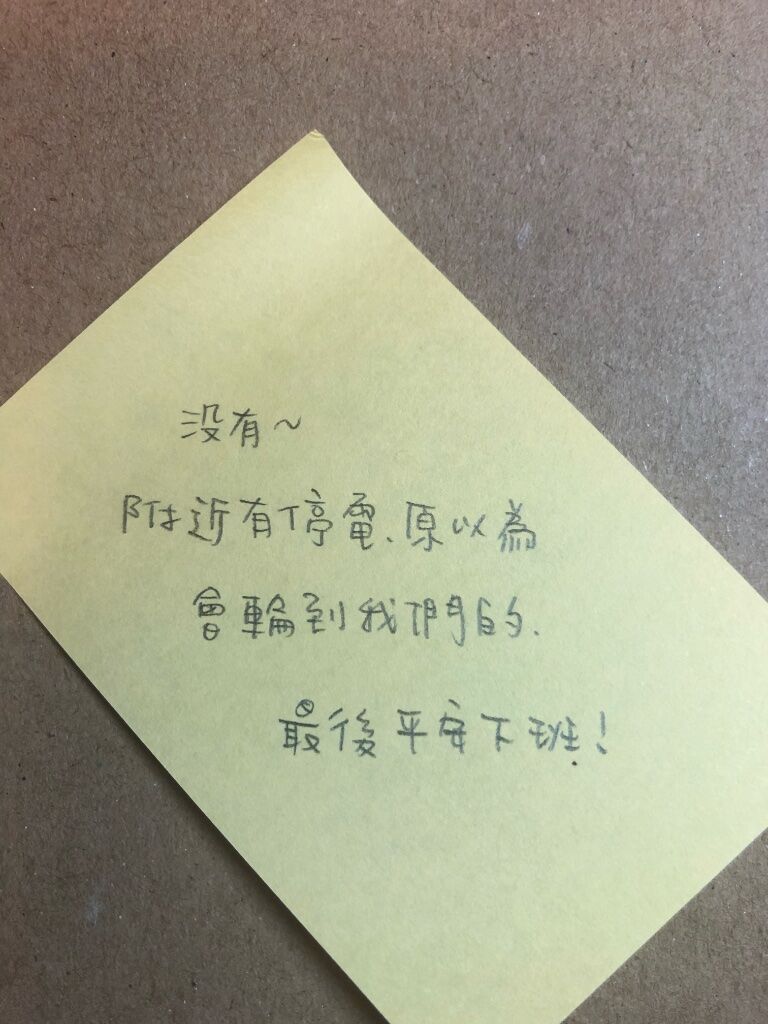 沒有~
附近有停電、原以為
會輪到我們的.
最後平安下班!